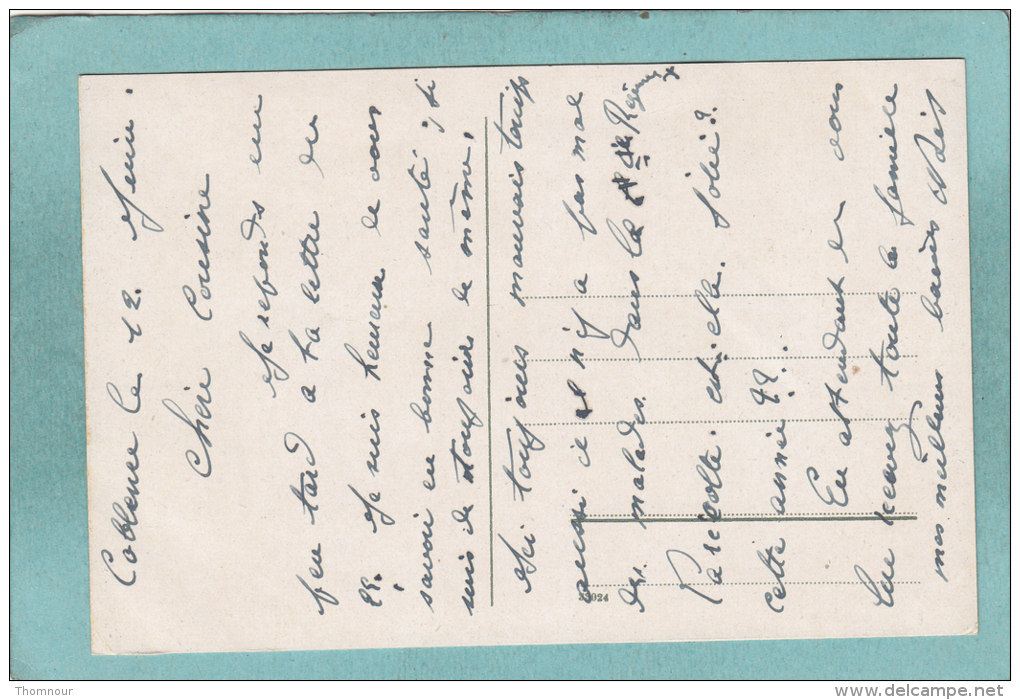 Coblence le 12. Juin.
Chère Cousine
Je reponds un
peu tard a ta lettre du
28. Je suis heureux de vous
savoir en bonne santé, je
suis de toujours de même.
Ici toujours mauvais temps
aussi il n'y a pas mal
des malades. dans le Régiment
La récolte. est-elle. jolie?
cette année ??.
En attendant de vous
lire recevez toute la famille
mes meilleurs baisers
33024
Thomnour
www.delcampe.net